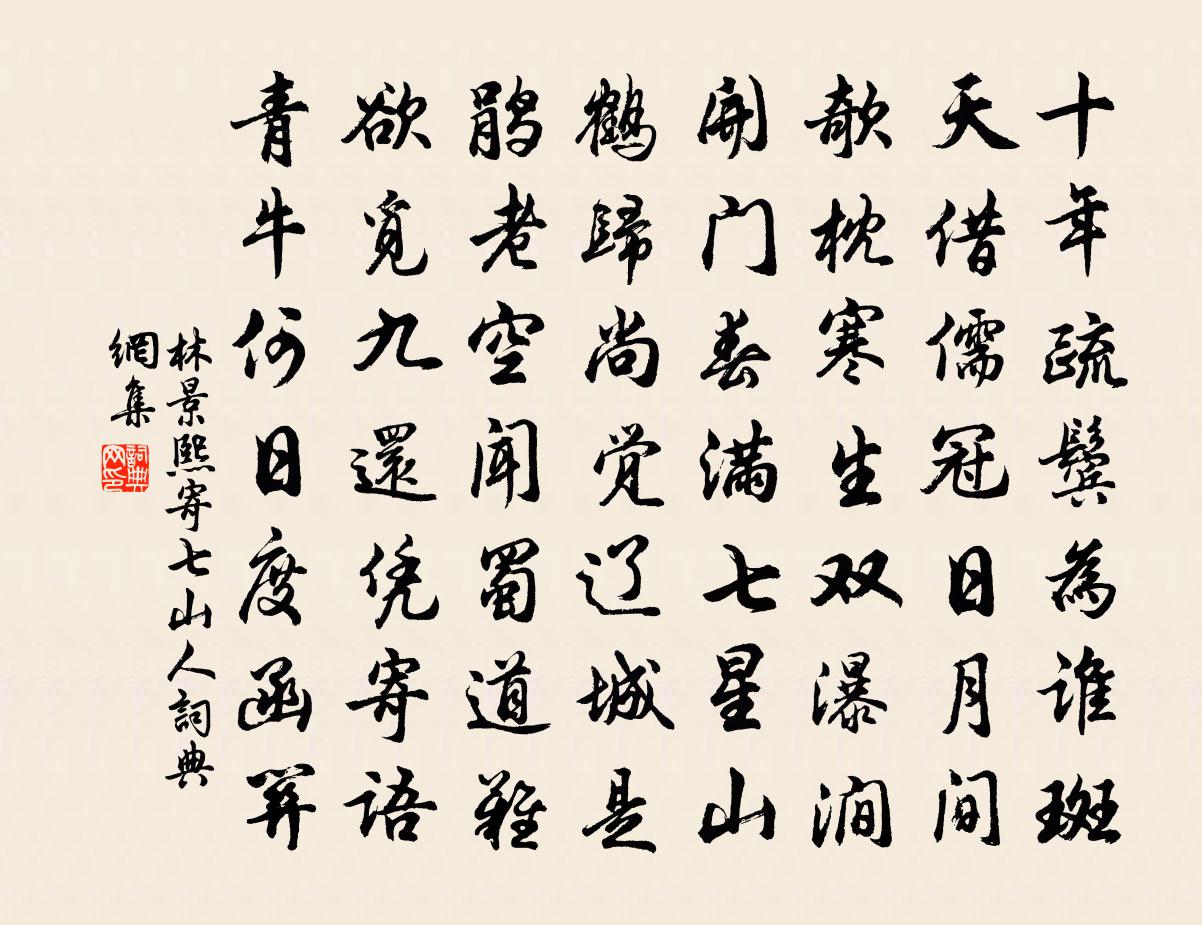 十年疏鬓為谁斑
天借儒冠日月间
欹枕寒生双瀑涧
開门春满七星山
鶴歸尚觉辽城是
鹃老空闻蜀道難
欲覓九還凭寄语
青牛何日度函関
林景熙寄七山人詞典
網集
詞典
网印